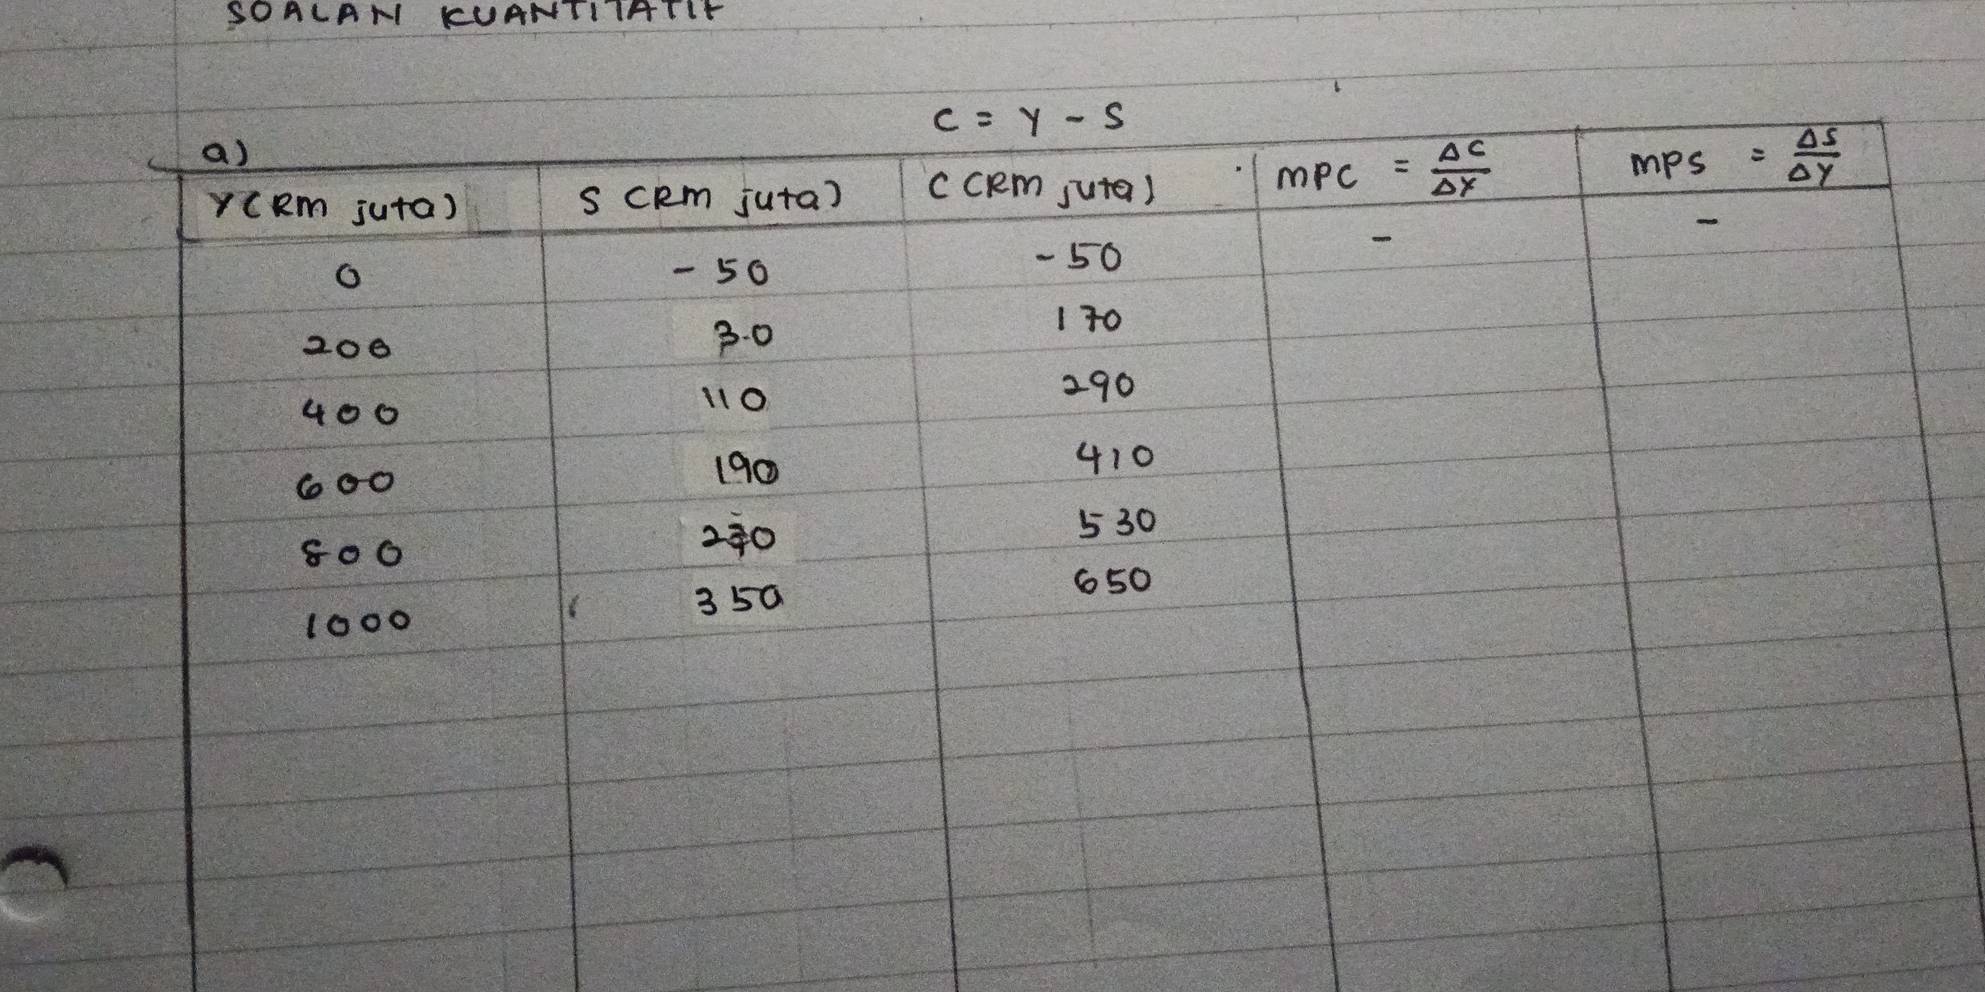 SOALAN KUANTITATIF
C = Y - S
a)
Y(RM juta) S (RM juta) C (RM juta) MPC = ΔC/ΔY MPS = ΔS/ΔY
0 -50 -50 - -
200 30 170
400 110 290
600 190 410
800 270 530
1000 350 650